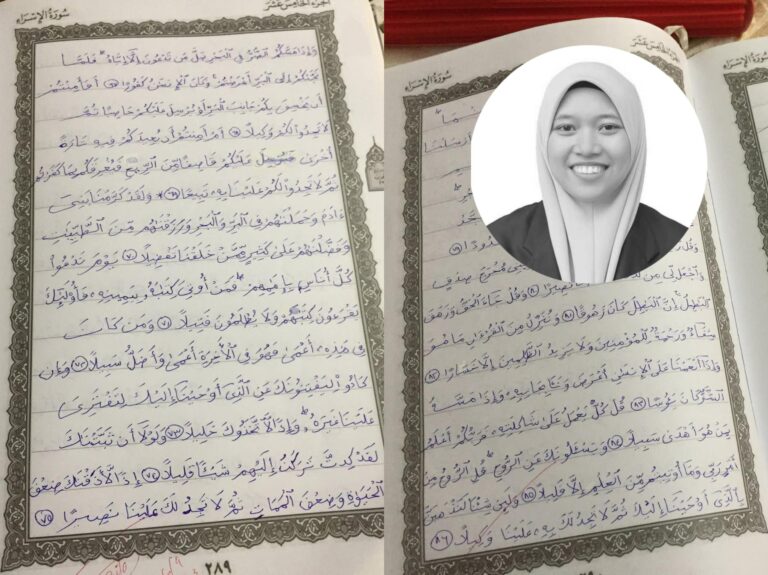 سُورَةُ الإِسْرَاء
الجزء الخامس عشر
وَإِذَا مَسَّكُمُ ٱلضُّرُّ فِى ٱلْبَحْرِ ضَلَّ مَن تَدْعُونَ إِلَّآ إِيَّاهُ فَلَمَّا
نَجَّىٰكُمْ إِلَى ٱلْبَرِّ أَعْرَضْتُمْ وَكَانَ ٱلْإِنسَٰنُ كَفُورًا ٦٧ أَفَأَمِنتُمْ
أَن يَخْسِفَ بِكُمْ جَانِبَ ٱلْبَرِّ أَوْ يُرْسِلَ عَلَيْكُمْ حَاصِبًا ثُمَّ
لَا تَجِدُوا۟ لَكُمْ وَكِيلًا ٦٨ أَمْ أَمِنتُمْ أَن يُعِيدَكُمْ فِيهِ تَارَةً
أُخْرَىٰ فَيُرْسِلَ عَلَيْكُمْ قَاصِفًا مِّنَ ٱلرِّيحِ فَيُغْرِقَكُم بِمَا كَفَرْتُمْ
ثُمَّ لَا تَجِدُوا۟ لَكُمْ عَلَيْنَا بِهِۦ تَبِيعًا ٦٩ وَلَقَدْ كَرَّمْنَا بَنِىٓ
ءَادَمَ وَحَمَلْنَٰهُمْ فِى ٱلْبَرِّ وَٱلْبَحْرِ وَرَزَقْنَٰهُم مِّنَ ٱلطَّيِّبَٰتِ
وَفَضَّلْنَٰهُمْ عَلَىٰ كَثِيرٍ مِّمَّنْ خَلَقْنَا تَفْضِيلًا ٧٠ يَوْمَ نَدْعُوا۟
كُلَّ أُنَاسٍۭ بِإِمَٰمِهِمْ فَمَنْ أُوتِىَ كِتَٰبَهُۥ بِيَمِينِهِۦ فَأُو۟لَٰٓئِكَ
يَقْرَءُونَ كِتَٰبَهُمْ وَلَا يُظْلَمُونَ فَتِيلًا ٧١ وَمَن كَانَ
فِى هَٰذِهِۦٓ أَعْمَىٰ فَهُوَ فِى ٱلْءَاخِرَةِ أَعْمَىٰ وَأَضَلُّ سَبِيلًا ٧٢ وَإِن
كَادُوا۟ لَيَفْتِنُونَكَ عَنِ ٱلَّذِىٓ أَوْحَيْنَآ إِلَيْكَ لِتَفْتَرِىَ
عَلَيْنَا غَيْرَهُۥ وَإِذًا لَّٱتَّخَذُوكَ خَلِيلًا ٧٣ وَلَوْلَآ أَن ثَبَّتْنَٰكَ
لَقَدْ كِدتَّ تَرْكَنُ إِلَيْهِمْ شَيْـًٔا قَلِيلًا ٧٤ إِذًا لَّأَذَقْنَٰكَ ضِعْفَ
ٱلْحَيَوٰةِ وَضِعْفَ ٱلْمَمَاتِ ثُمَّ لَا تَجِدُ لَكَ عَلَيْنَا نَصِيرًا ٧٥
٢٨٩
سُورَةُ الإِسْرَاء
أَرْسَلْنَا
وَقُل
مُخْرَجَ صِدْقٍ
وَٱجْعَل لِّى مِن نَّصِيرًا ٨٠ وَقُلْ جَآءَ ٱلْحَقُّ وَزَهَقَ
ٱلْبَٰطِلُ إِنَّ ٱلْبَٰطِلَ كَانَ زَهُوقًا ٨١ وَنُنَزِّلُ مِنَ ٱلْقُرْءَانِ مَا هُوَ
شِفَآءٌ وَرَحْمَةٌ لِّلْمُؤْمِنِينَ وَلَا يَزِيدُ ٱلظَّٰلِمِينَ إِلَّا خَسَارًا ٨٢
وَإِذَآ أَنْعَمْنَا عَلَى ٱلْإِنسَٰنِ أَعْرَضَ وَنَـَٔا بِجَانِبِهِۦ وَإِذَا مَسَّهُ
ٱلشَّرُّ كَانَ يَـُٔوسًا ٨٣ قُلْ كُلٌّ يَعْمَلُ عَلَىٰ شَاكِلَتِهِۦ فَرَبُّكُمْ أَعْلَمُ
بِمَنْ هُوَ أَهْدَىٰ سَبِيلًا ٨٤ وَيَسْـَٔلُونَكَ عَنِ ٱلرُّوحِ قُلِ ٱلرُّوحُ مِنْ
أَمْرِ رَبِّى وَمَآ أُوتِيتُم مِّنَ ٱلْعِلْمِ إِلَّا قَلِيلًا ٨٥ وَلَئِن شِئْنَا لَنَذْهَبَنَّ
بِٱلَّذِىٓ أَوْحَيْنَآ إِلَيْكَ ثُمَّ لَا تَجِدُ لَكَ بِهِۦ عَلَيْنَا وَكِيلًا ٨٦